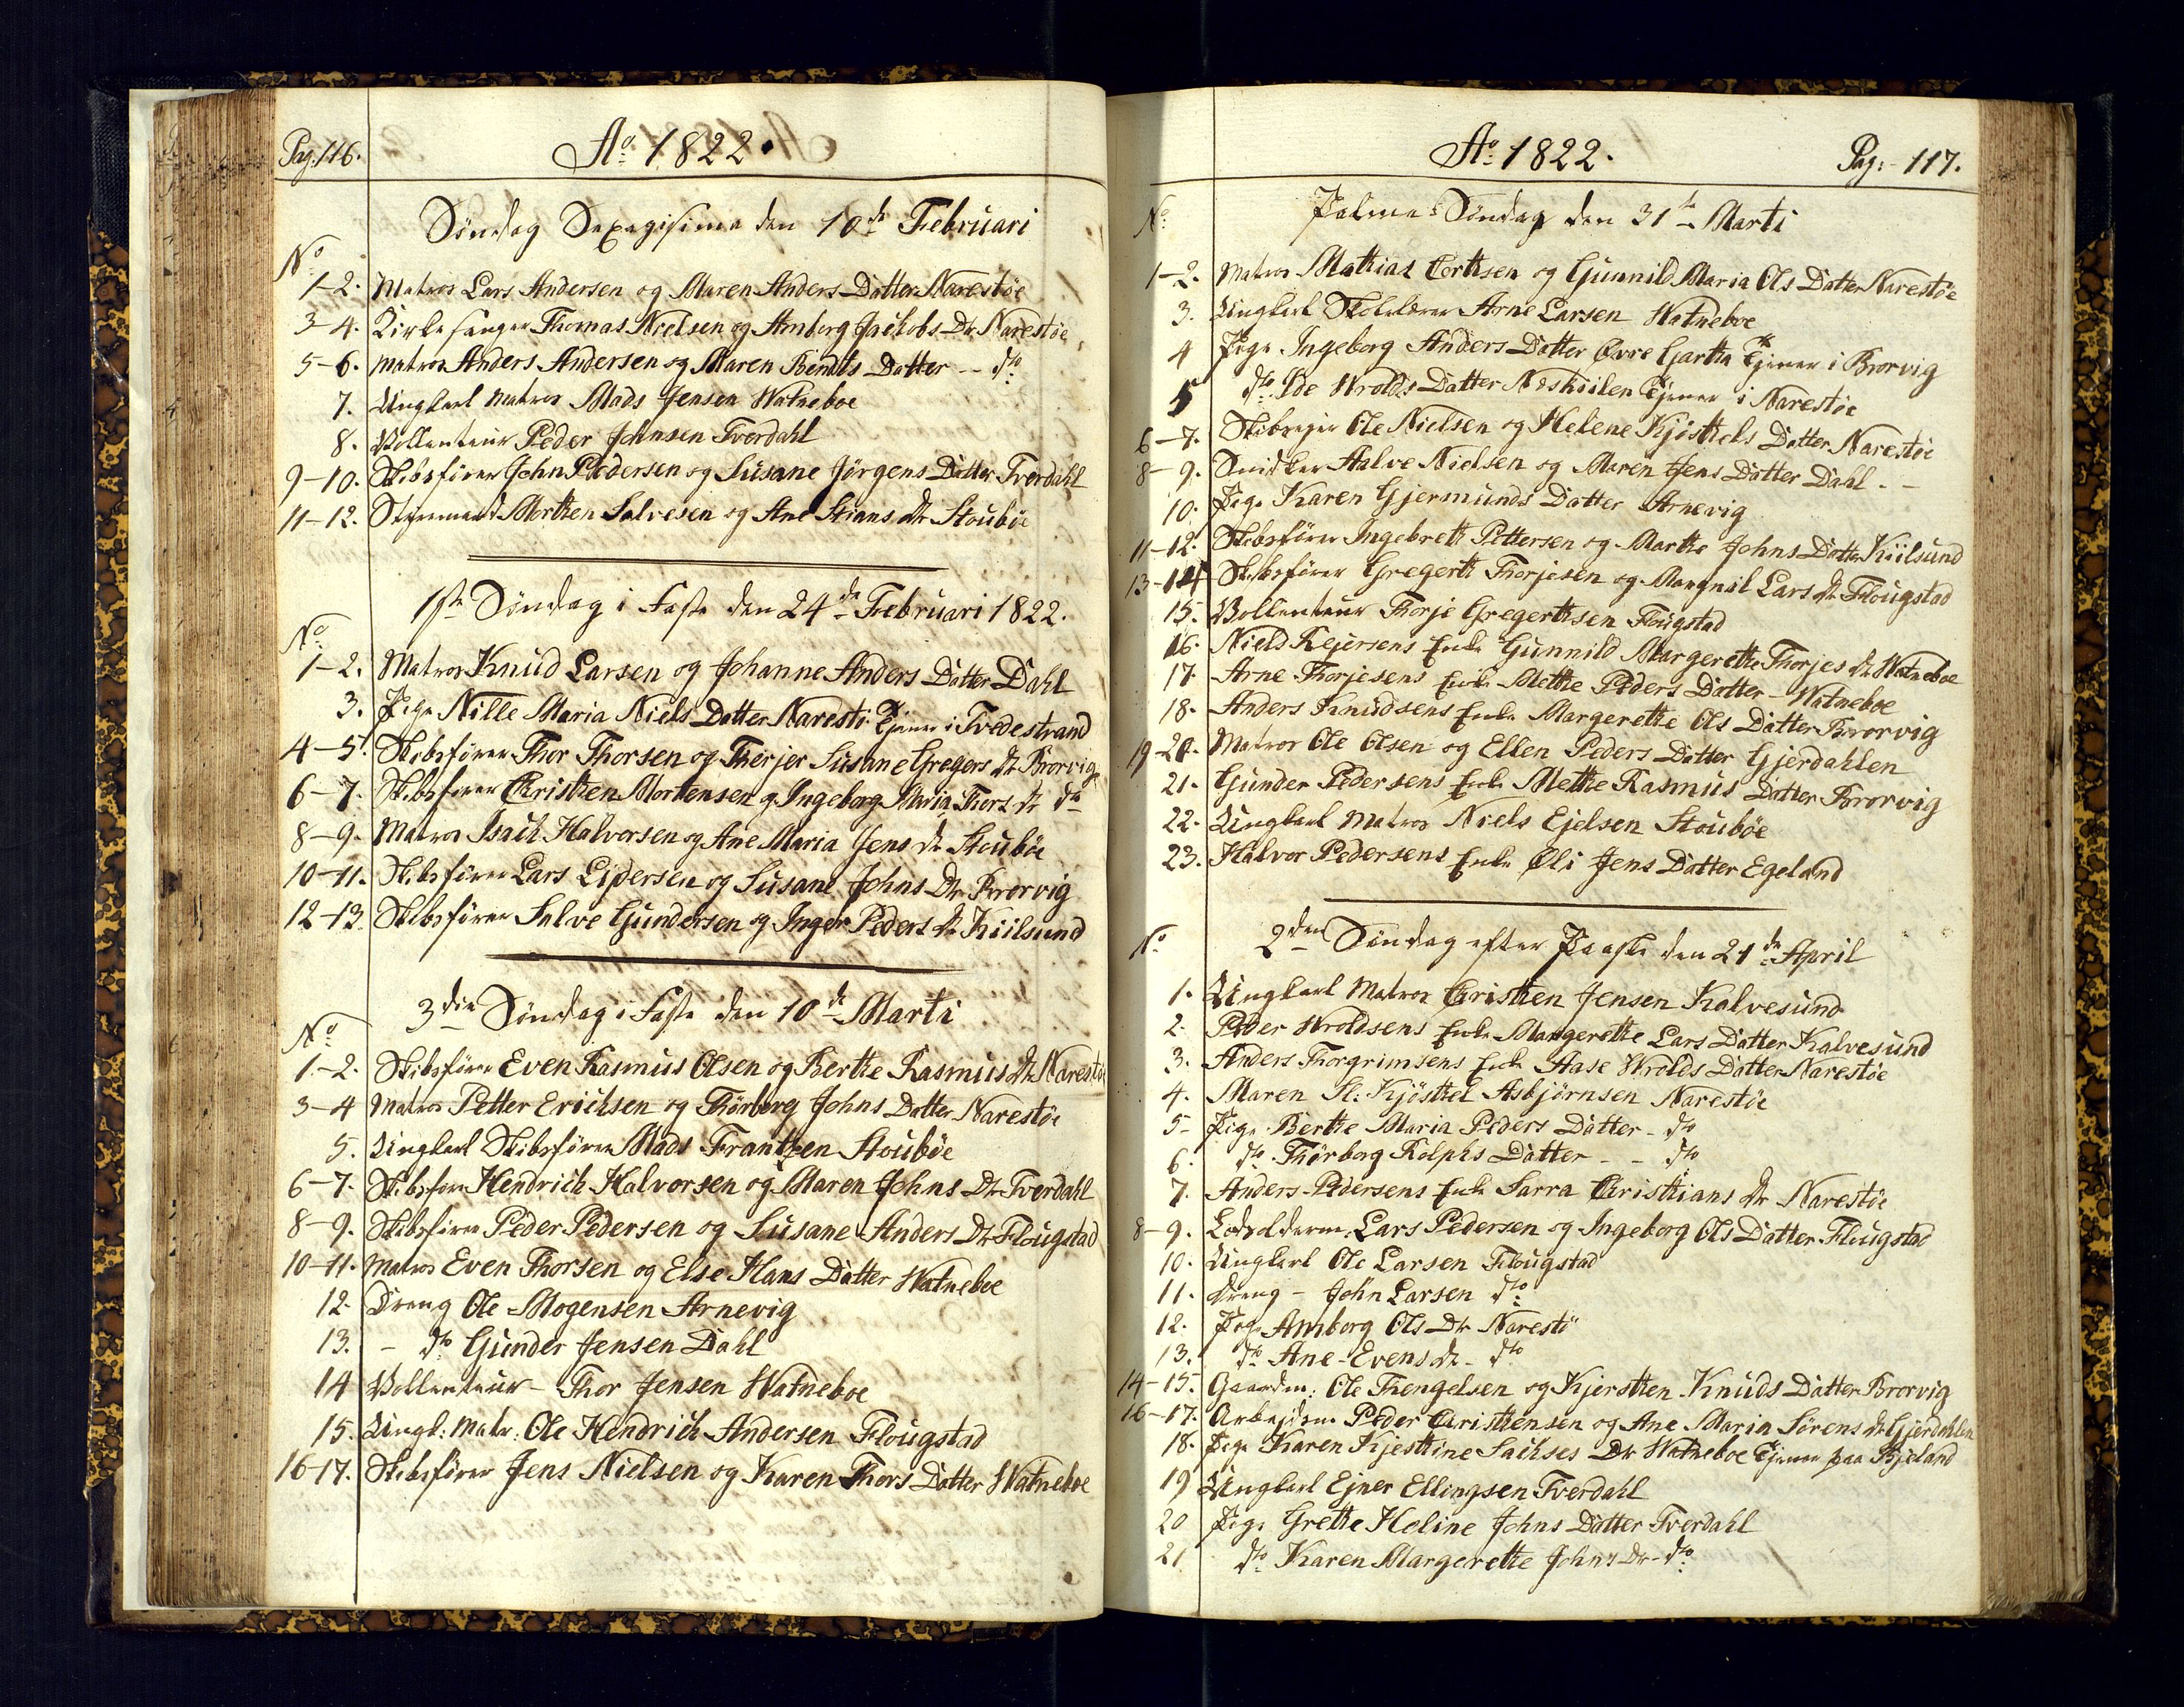 Pag: 116.
Ao 1822.
Søndag Sexagisima den 10de Februari
No
1-2. Matros Lars Andersen og Maren Anders Datter Narestøe
3-4. Kirkesanger Thomas Nielsen og Amborg Jachobs Dr. Narestøe
5-6. Matros Anders Andersen og Maren Bendts Datter -- do
7. Ungkarl Matros Mads Jensen Watneboe
8. Vollenteur Peder Johnsen Tverdahl
9-10. Skibsfører John Pedersen og Susane Jørgens Datter Tverdahl
11-12. Styrmand Morthen Salvesen og Ane Stians Dr Stoubøe
1ste Søndag i Faste den 24de Februari 1822.
No
1-2. Matros Knud Larsen og Johanne Anders Datter Dahl
3. Pige Nille Maria Niels Datter Narestø Tjener i Tvedestrand
4-5. Skibsfører Thor Thorsen og Therjer Susane Gregers Dr Brorvig
6-7. Skibsfører Christhen Mortensen og Ingeborg Maria Thors Dr do
8-9. Matros Isach Halvorsen og Ane Maria Jens Dr Stoubøe
10-11. Skibsfører Lars Lidersen og Susane Johns Dr. Brorvig
12-13. Skibsfører Salve Gundersen og Inger Peders Dr Kiilsund
3die Søndag i Faste den 10de Marti
No
1-2. Skibsfører Even Rasmus Olsen og Berthe Rasmus Dr Narestøe
3-4 Matros Petter Erichsen og Thorberg Johns Datter Narestøe
5. Ungkarl Skibsfører Mads Frantzen Stoubøe
6-7. Skibsfører Hendrich Halvorsen og Maren Johns Dr. Tverdahl
8-9. Skibsfører Peder Pedersen og Susane Anders Dr. Flougstad
10-11. Matros Even Thorsen og Else Hans Datter Watneboe
12. Dreng Ole Mogensen Arnevig
13. - do Gunder Jensen Dahl
14 Vollenteur - Thor Jensen Watneboe
15. Ungk: Matr: Ole Hendrich Andersen Flougstad
16-17. Skibsfører Jens Nielsen og Karen Thors Datter Watneboe
Ao 1822.
Pag: 117.
No
Palme Søndag den 31te Marti
1-2. Matros Mathias Berthsen og Gunnild Maria Ols Datter Narestøe
3. Ungkarl Skolelærer Arne Larsen Watneboe
4 Pige Ingeborg Anders Datter Øvre Gartha Tjener i Brorvig
5 do Ide Wrolds Datter Neskiilen Tjener i Narestøe
6-7. Skibsejer Ole Nielsen og Helene Kjøsthels Datter Narestøe
8-9. Snidker Halve Nielsen og Maren Jens Datter Dahl. -
10. Pige Karen Gjermunds Datter Arnevig
11-12. Skibsfører Ingebreth Pettersen og Marthe Johns Datter Kiilsund
13-14 Skibsfører Gregerth Thorjesen og Mangnil Lars Dr Flougstad
15. Vollenteur Thorje Gregerthsen Flougstad
16. Niels Rejersens Enke Gunnild Margerethe Thorjes Dr Watneboe
17. Arne Thorjesens Enke Methe Peders Datter - Watneboe
18. Anders Knudsens Enke Margerethe Ols Datter Brorvig
19-20. Matros Ole Olsen og Ellen Peders Datter Gjerdahlen
21. Gunder Pedersens Enke Methe Rasmus Datter Brorvig
22. Ungkarl Matros Niels Ejelsen Stoubøe
23. Halvor Pedersens Enke Oli Jens Datter Egeland
No
2den Søndag efter Paaske den 21de April
1. Ungkarl Matros Christhen Jensen Kalvesund
2. Peder Wroldsens Enke Margerethe Lars Datter Kalvesund
3. Anders Thorgrimsens Enke Aase Wrolds Datter Narestøe
4. Maren Sl: Kjøsthel Asbjørnsen Narestøe
5- Pige Berthe Maria Peders Datter - do
6. do Thørborg Rolphs Datter - - do
7. Anders Pedersens Enke Sarra Christhians Dr Narestøe
8-9. Lodsolderm. Lars Pedersen og Ingeborg Ols Datter Flougstad
10. Ungkarl Ole Larsen Flougstad
11. Dreng - John Larsen do
12. Pige Amborg Ols Dr. Narestø
13. do Ane Evens Dr - do
14-15. Gaardm: Ole Thengelsen og Kjersthen Knuds Datter Brorvig
16-17. Arbejdsm. Peder Christhensen og Ane Maria Sørens Dr Gjerdahlen
18. Pige Karen Kjesthine Sachses Dr Watneboe Tjener paa Bjeland
19 Ungkarl Ejner Ellingsen Tverdahl
20 Pige Grethe Heline Johns Datter Tverdahl
21 do Karen Margerethe Johns Dr - do